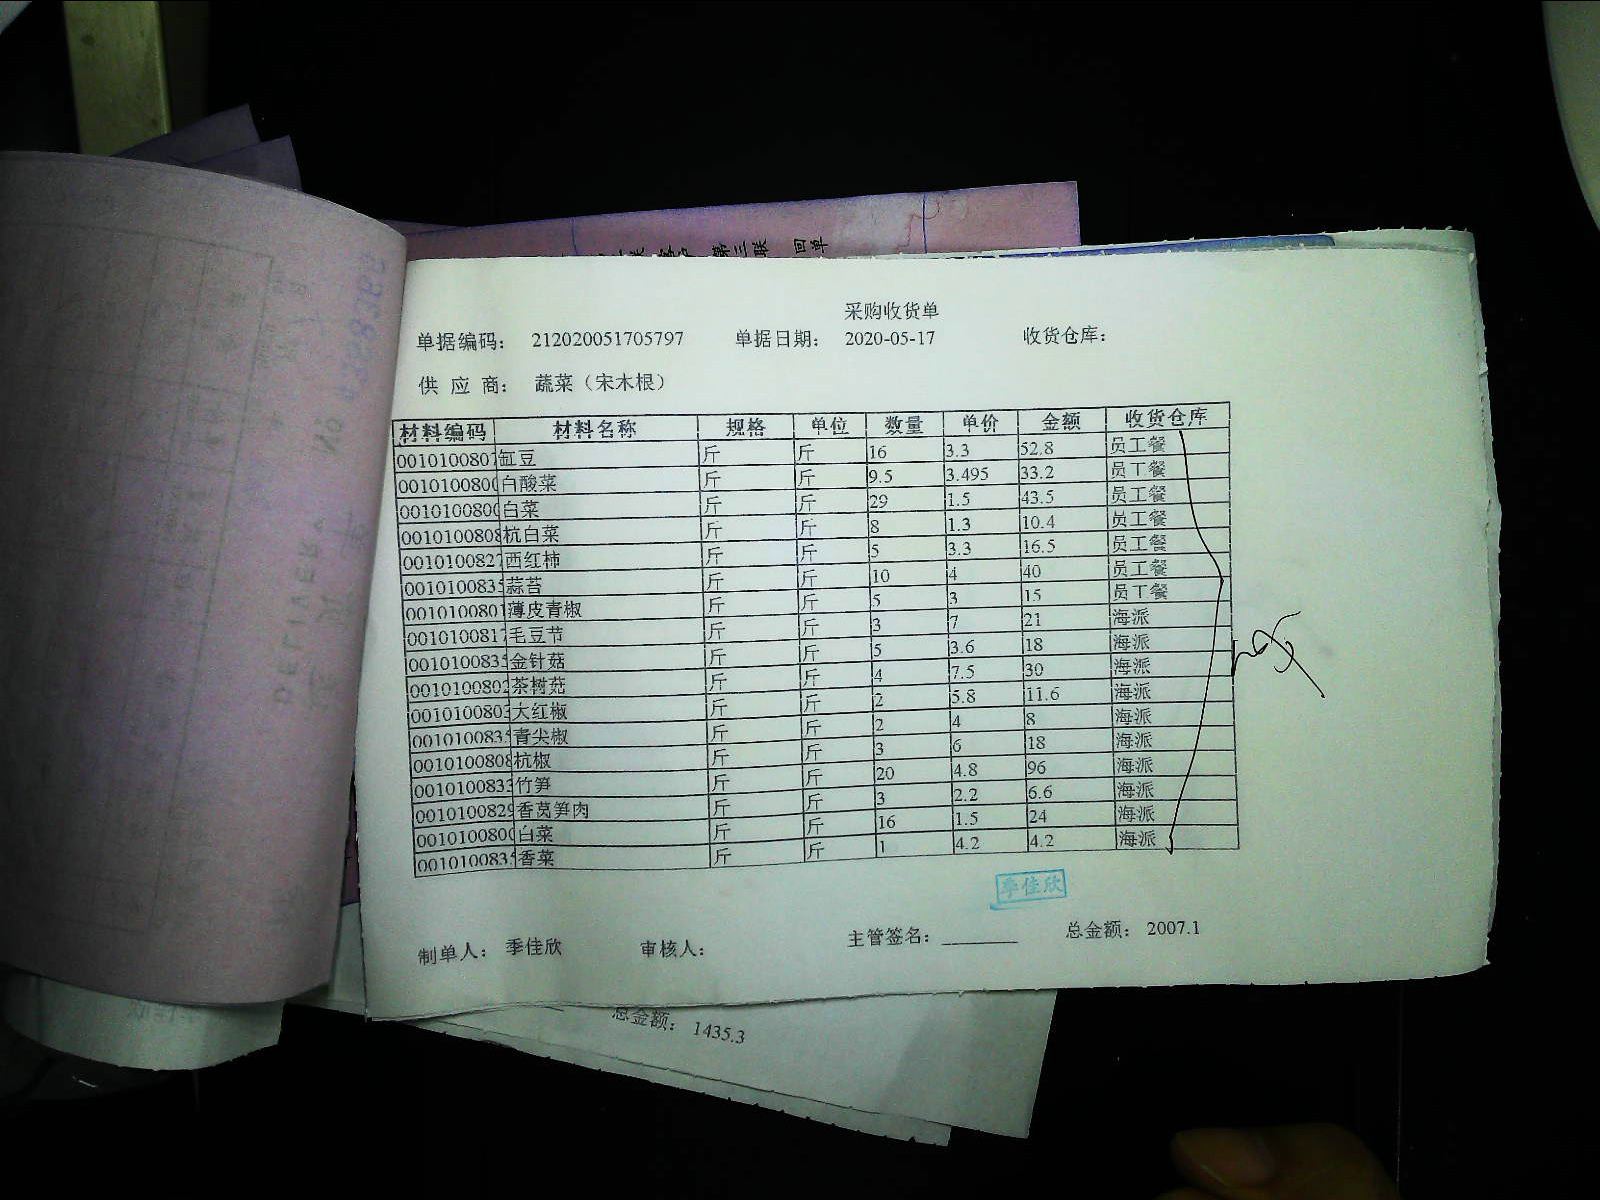 第三联 回单
采购收货单
单据编码： 212020051705797 单据日期： 2020-05-17 收货仓库：
供 应 商： 蔬菜（宋木根）
材料编码 材料名称 规格 单位 数量 单价 金额 收货仓库
0010100807 缸豆 斤 斤 16 3.3 52.8 员工餐
0010100800 白酸菜 斤 斤 9.5 3.495 33.2 员工餐
0010100800 白菜 斤 斤 29 1.5 43.5 员工餐
0010100808 杭白菜 斤 斤 8 1.3 10.4 员工餐
0010100827 西红柿 斤 斤 5 3.3 16.5 员工餐
0010100835 蒜苔 斤 斤 10 4 40 员工餐
0010100801 薄皮青椒 斤 斤 5 3 15 员工餐
0010100817 毛豆节 斤 斤 3 7 21 海派
0010100835 金针菇 斤 斤 5 3.6 18 海派
0010100802 茶树菇 斤 斤 4 7.5 30 海派
0010100803 大红椒 斤 斤 2 5.8 11.6 海派
0010100835 青尖椒 斤 斤 2 4 8 海派
0010100808 杭椒 斤 斤 3 6 18 海派
0010100833 竹笋 斤 斤 20 4.8 96 海派
0010100829 香莴笋肉 斤 斤 3 2.2 6.6 海派
0010100800 白菜 斤 斤 16 1.5 24 海派
0010100835 香菜 斤 斤 1 4.2 4.2 海派
季佳欣
制单人： 季佳欣 审核人： 主管签名：________ 总金额： 2007.1
总金额： 1435.3